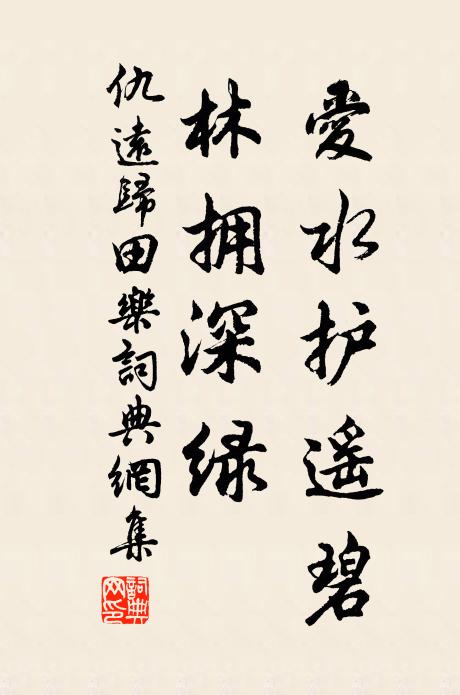 愛水护遥碧
林拥深绿
仇遠歸田樂詞典網集
詞典網印